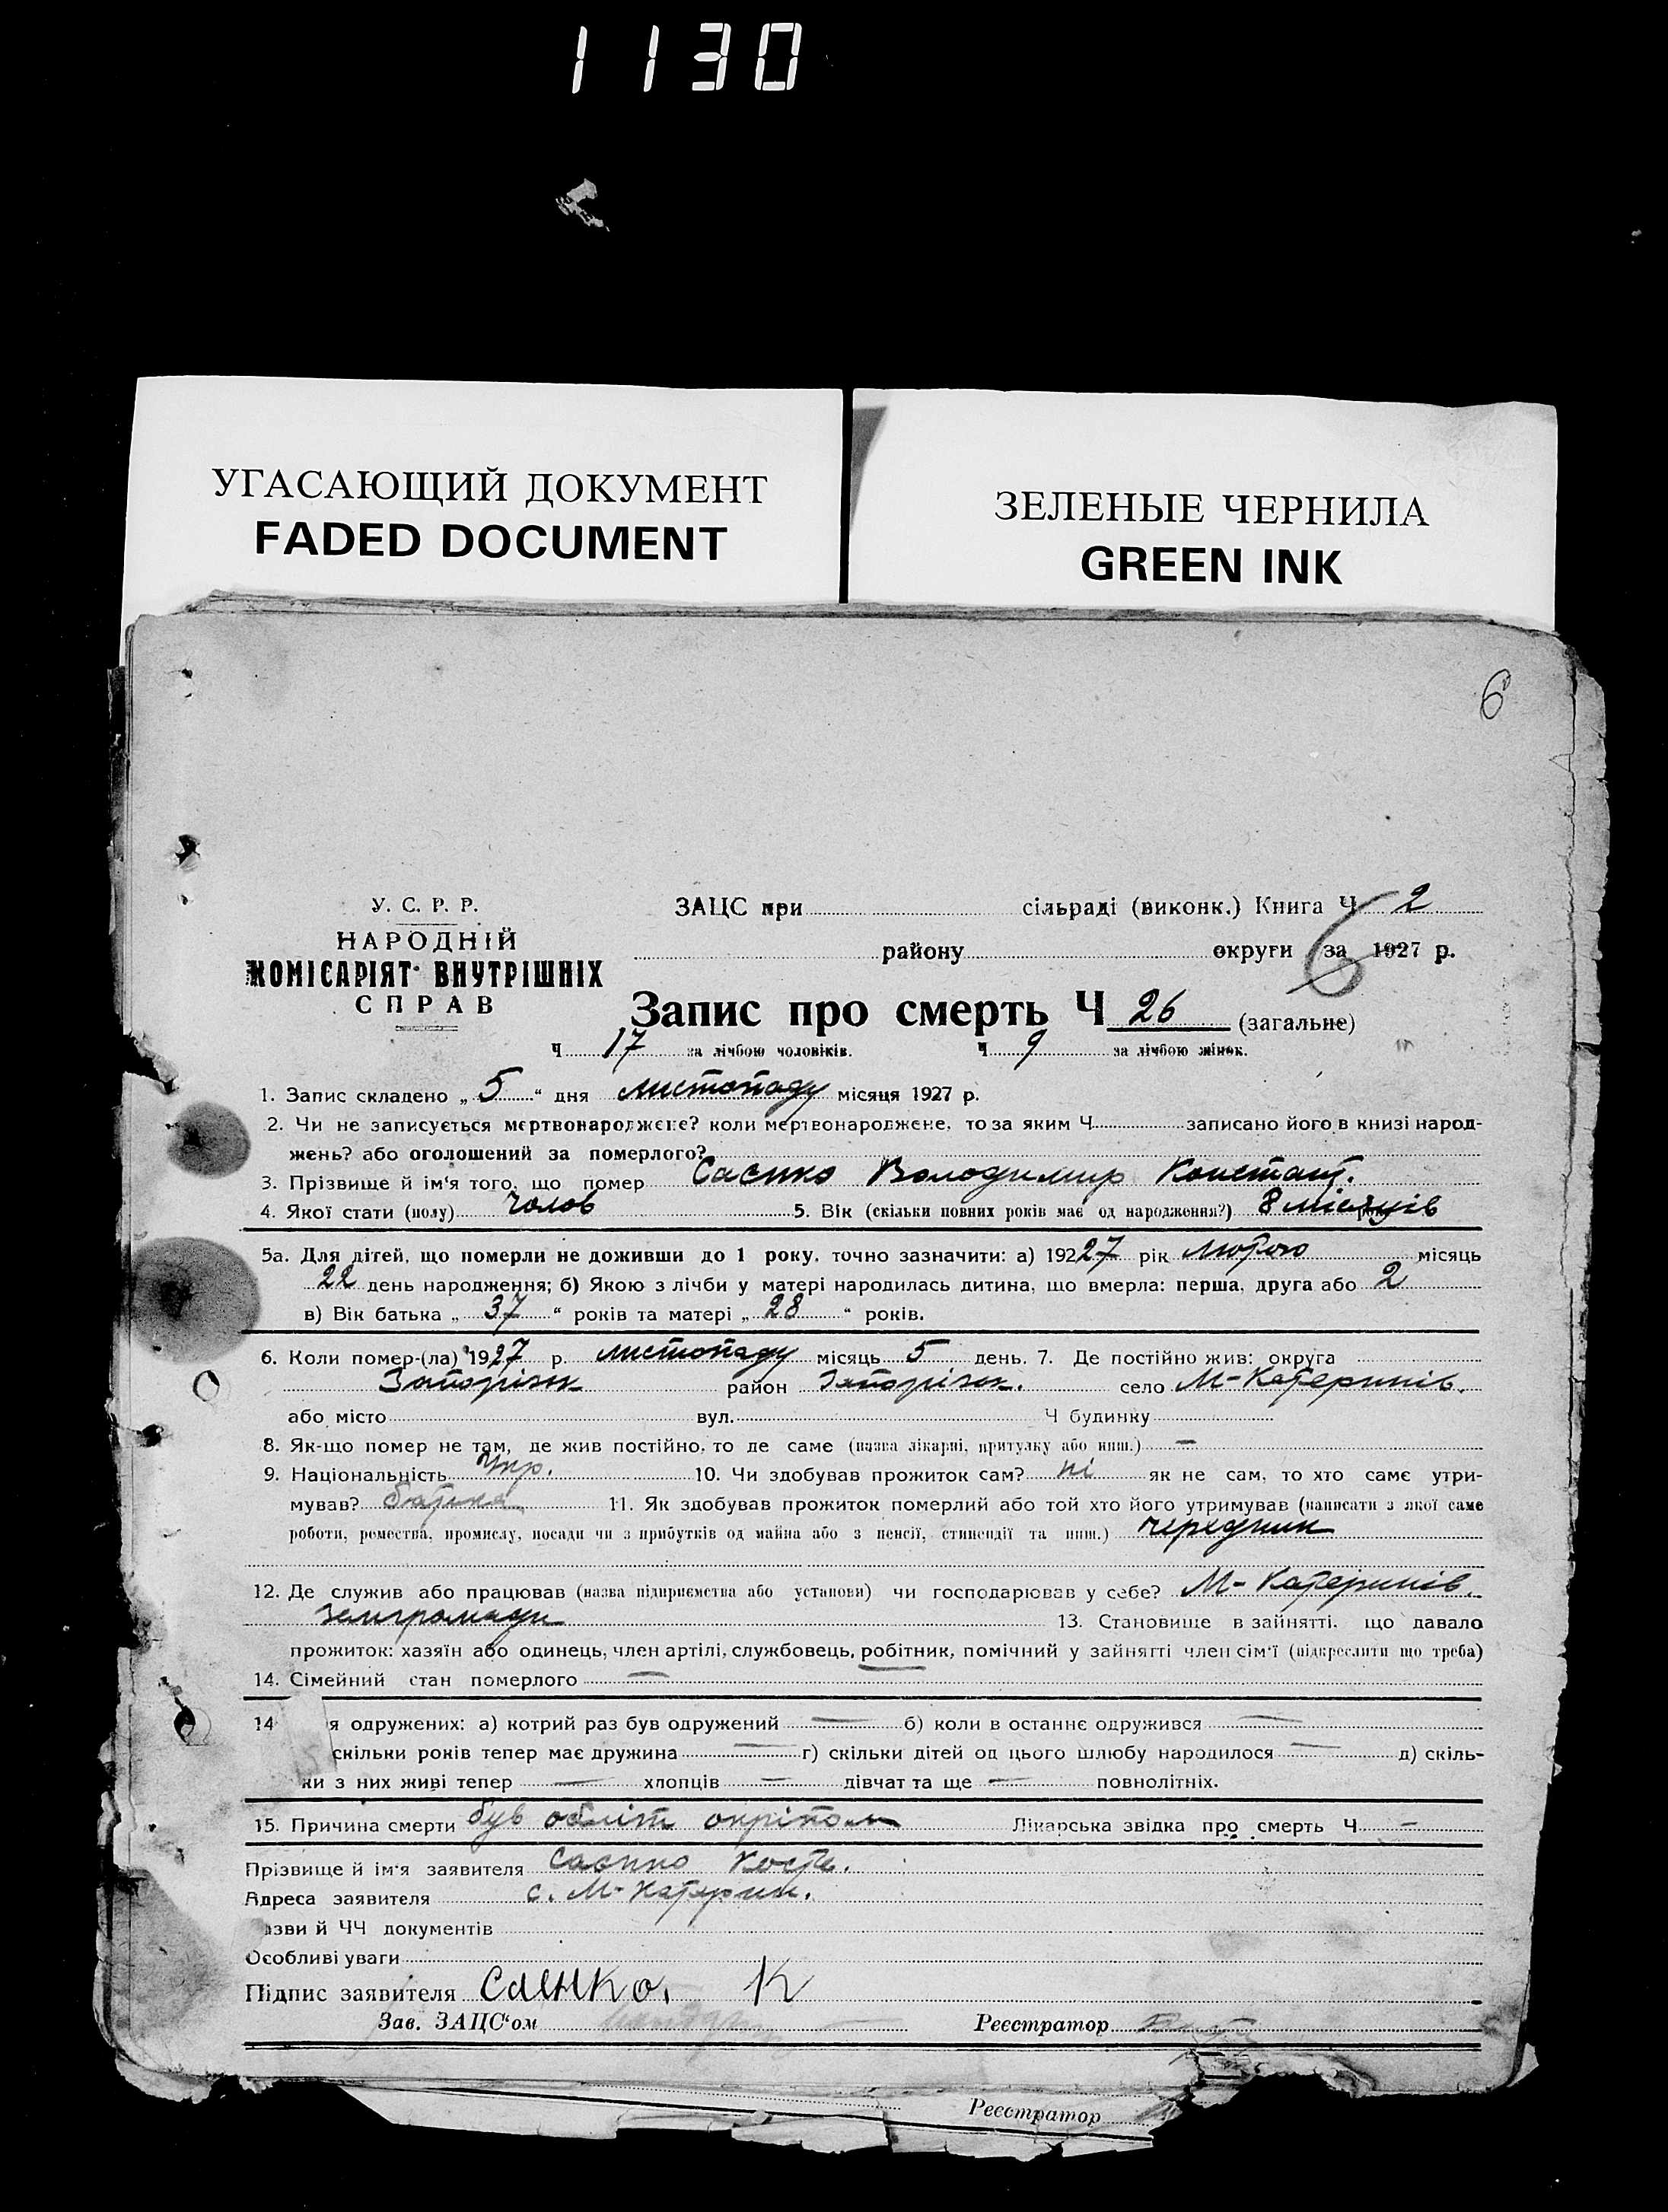 1130
УГАСАЮЩИЙ ДОКУМЕНТ
FADED DOCUMENT
ЗЕЛЕНЫЕ ЧЕРНИЛА
GREEN INK
6
У. С. Р. Р.
НАРОДНІЙ
КОМІСАРІЯТ ВНУТРІШНІХ
СПРАВ
ЗАЦС при сільраді (виконк.) Книга Ч 2
району округи за 1927 р.
6
Запис про смерть Ч 26 (загальне)
Ч 17 за лічбою чоловіків. Ч 9 за лічбою жінок.
1. Запис складено „ 5 “ дня листопаду місяця 1927 р.
2. Чи не записується мертвонароджене? коли мертвонароджене, то за яким Ч записано його в книзі народ-
жень? або оголошений за померлого?
3. Прізвище й ім'я того, що помер Саєнко Володимир Констант.
4. Якої стати (полу) чолов 5. Вік (скільки повних років має од народження?) 8 місяців
5а. Для дітей, що померли не доживши до 1 року, точно зазначити: а) 19227 рік лютого місяць
22 день народження; б) Якою з лічби у матері народилась дитина, що вмерла: перша, друга або 2
в) Вік батька „ 37 “ років та матері „ 28 “ років.
6. Коли помер-(ла) 1927 р. листопаду місяць 5 день. 7. Де постійно жив: округа
Запорізьк район Запорізьк. село М-Катеринів.
або місто вул. Ч будинку
8. Як-що помер не там, де жив постійно, то де саме (назва лікарні, притулку або инш.) —
9. Національність Укр. 10. Чи здобував прожиток сам? ні як не сам, то хто саме утри-
мував? батька 11. Як здобував прожиток померлий або той хто його утримував (написати з якої саме
роботи, ремества, промислу, посади чи з прибутків од майна або з пенсії, стипендії та инш.) чередник
12. Де служив або працював (назва підприємства або установи) чи господарював у себе? М- Катеринів.
земгромади 13. Становище в зайнятті, що давало
прожиток: хазяїн або одинець, член артілі, службовець, робітник, помічний у зайнятті член сім'ї (підкреслити що треба)
14. Сімейний стан померлого —
14 я одружених: а) котрий раз був одружений — б) коли в останнє одружився —
скільки років тепер має дружина — г) скільки дітей од цього шлюбу народилося — д) скіль-
ки з них живі тепер — хлопців — дівчат та ще — повнолітніх.
15. Причина смерти був обліт окріпом Лікарська звідка про смерть Ч —
Прізвище й ім'я заявителя Саєнко Кость.
Адреса заявителя с. М-Катерин.
азви й ЧЧ документів
Особливі уваги
Підпис заявителя Саєнко. К
Зав. ЗАЦС'ом Реєстратор
Реєстратор